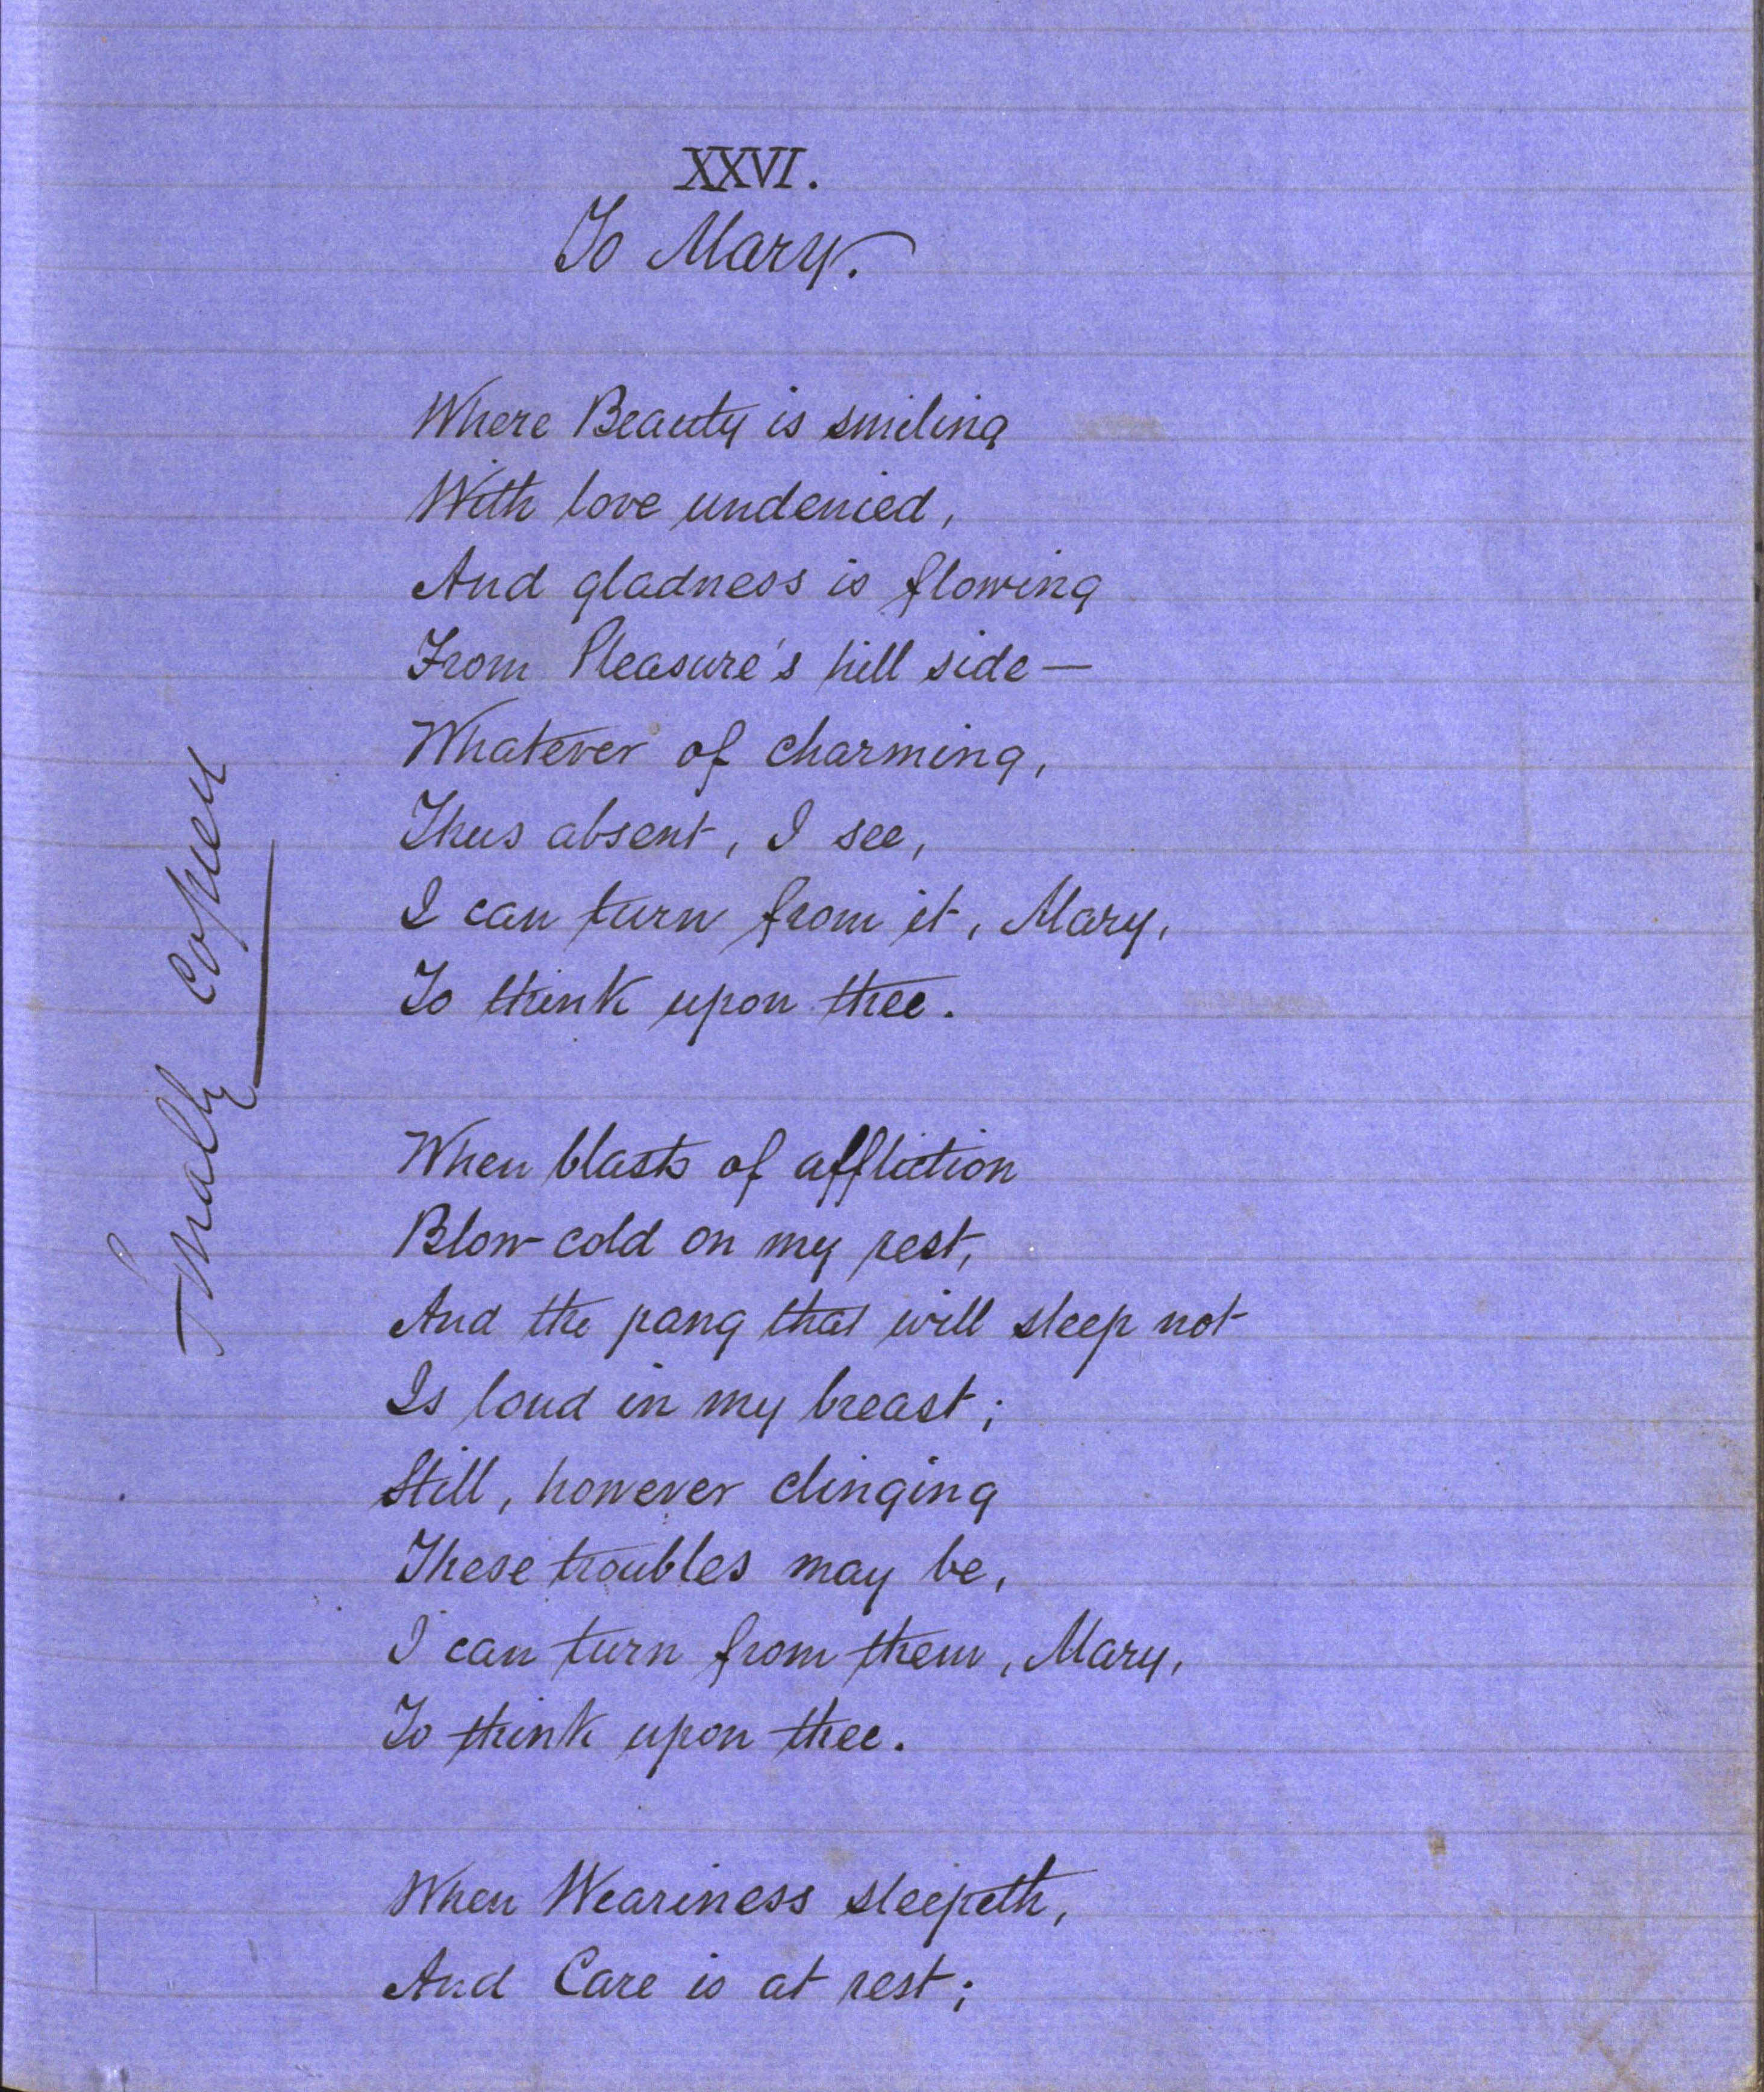 XXVI.
To Mary.
Where Beauty is smiling
With love undenied,
And gladness is flowing
From Pleasure's hill side —
Whatever of charming,
Thus absent, I see,
I can turn from it, Mary,
To think upon thee.
When blasts of affliction
Blow cold on my rest,
And the pang that will sleep not
Is loud in my breast;
Still, however clinging
These troubles may be,
I can turn from them, Mary,
To think upon thee.
When Weariness sleepeth,
And Care is at rest;
Finally copied